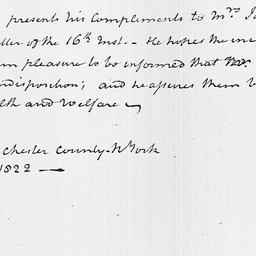 presents his Compliments to Mrs. Ja
tter of the 16th Inst. - He hopes the inc
m pleasure to be informed that
ndisposition; and he assures them
lth and Welfare

chester County. N York
1822 —